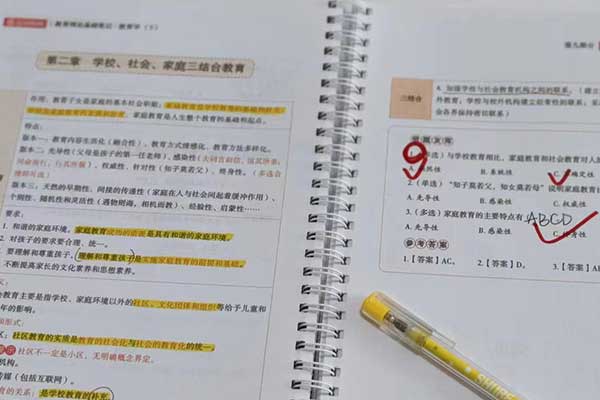 教育理论基础笔记·教育学（下）
第二章 学校、社会、家庭三结合教育
作用：教育子女是家庭的基本社会职能；
教育的
家庭教育是人生整个教育的基础和起点。
特点：
版本一：教育内容生活化（融合性）、教育方式情感化、教育方法多样化。
版本二：先导性（父母是孩子的第一任老师）、感染性（
）、权威性、针对性（知子莫若父）、终身性。（多选会
版本三：天然的早期性、间接的传递性（家庭在人与社会间起着缓冲作用）、
个别性、随机性和灵活性（遇物则诲，相机而教）、经验性、启蒙性……
要求：
1. 和谐的家庭环境。家庭教育成功的必须是具有和谐的家庭环境。
2. 对孩子的要求要合理、统一。
要理解和尊重孩子。理解和尊重孩子是实施家庭教育的前提和基础。
不断提高家长的文化素养和思想素养。
教育主要是指学校、家庭环境以外的社区、文化团体和组织等给予儿童和
年的影响。
和形式：
区：社区教育的实质是教育的社会化与社会的教育化的统一。
社区不一定是小区，无明确概念界定。
传媒（包括互联网）。
教育的关系：是学校教育的补充。
第九部分
三结合
4. 加强学校与社会教育机构之间的联系。（建立
外教育，学校与校外机构建立经常性的联系；采
会各界保持密切联系）
1.（多选）与学校教育相比，家庭教育和社会教育对人
2.（单选）“知子莫若父，知女莫若母”说明家庭教育
A. 先导性 B. 感染性 C. 权威性
3.（多选）家庭教育的主要特点有 ABCD
A. 先导性 B. 感染性
参考答案
1.【答案】AC。 2.【答案】D。 3.【答案】AB